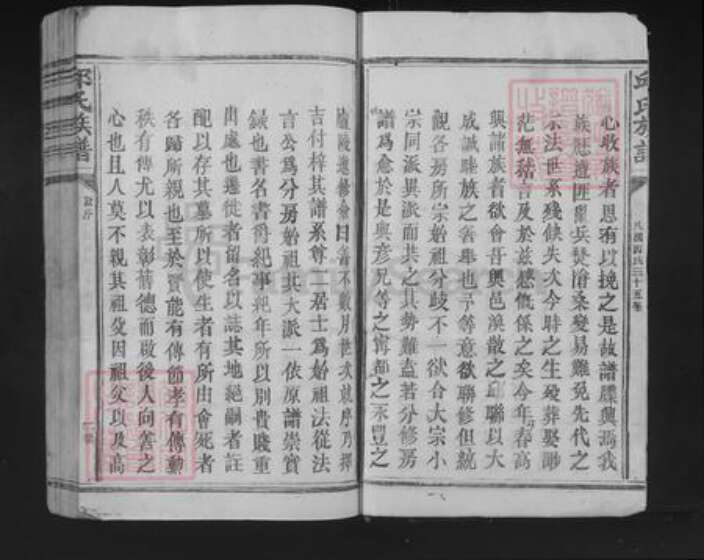 邱氏族譜
心收族者思有以挽之是故譜牒興焉我
族歷遭匪亂兵燹滄桑變易難免先代之
宗法世系殘缺失次今時之生歿葬娶渺
茫無稽言及於兹感慨係之矣今年春高
興諸族者欲會吾興邑渙散之邱聯以大
成誠睦族之善舉也予等意欲聯修但統
觀各房所宗始祖分歧不一欲合大宗小
宗同派異派而共之其勢難盍若分修房
譜爲愈於是與彥兄等之寧都之永豐之
會日者不數月世次就序乃擇
吉付梓其譜系尊二居士爲始祖法從法
言公爲分房始祖其大派一依原譜崇實
錄也書名書爵紀事紀年所以別貴賤重
出處也遷徙者留名以誌其地絕嗣者註
配以存其墓所以使生者有所由會死者
各歸所親也至於賢能有傳節孝有傳勳
秩有傳尤以表彰舊德而啟後人向善之
心也且人莫不親其祖父因祖父以及高
邱氏族譜